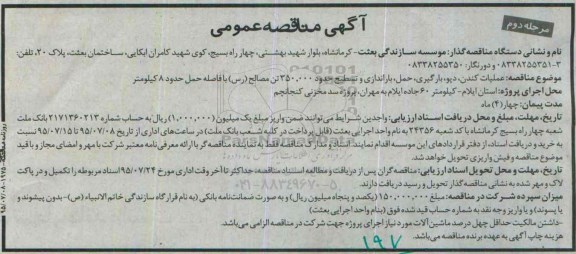 مرحله دوم
آگهی مناقصه عمومی
نام و نشانی دستگاه مناقصه گذار: موسسه سازندگی بعثت- کرمانشاه، بلوار شهید بهشتی، چهار راه بسیج، کوی شهید کامران ابکایی، ساختمان بعثت، پلاک ۲۰، تلفن:
۳-۰۸۳۳۸۲۵۵۳۵۱ و دورنگار: ۰۸۳۳۸۲۵۵۳۵۰
موضوع مناقصه: عملیات کندن، دپو، بارگیری، حمل، باراندازی و تسطیح حدود ۳۵۰,۰۰۰ تن مصالح (رس) با فاصله حمل حدود ۸ کیلومتر
محل اجرای پروژه: استان ایلام- کیلومتر ۶۰ جاده ایلام به مهران، پروژه سد مخزنی کنجانچم
مدت پیمان: چهار (۴) ماه
تاریخ، مهلت، مبلغ و محل دریافت اسناد ارزیابی: واجدین شرایط می توانند ضمن واریز مبلغ یک میلیون (۱,۰۰۰,۰۰۰) ریال به حساب شماره ۲۱۷۱۳۶۰۲۱۳ بانک ملت
شعبه چهار راه بسیج کرمانشاه با کد شعبه ۲۴۳۵۶ به نام واحد اجرایی بعثت (قابل پرداخت در کلیه شعب بانک ملت) در ساعت های اداری از تاریخ ۹۵/۰۷/۰۸ تا ۹۵/۰۷/۱۵ نسبت
به خرید و دریافت اسناد، از دفتر قراردادهای این موسسه اقدام نمایند. اسناد مدارک مناقصه فقط به نماینده مناقصه گر با ارائه معرفی نامه معتبر شرکت با مهر و امضای مجاز و با قید
موضوع مناقصه و فیش واریزی تحویل خواهد شد.
تاریخ، مهلت و محل تحویل اسناد ارزیابی: مناقصه گران پس از دریافت و مطالعه اسناد مناقصه، حداکثر تا آخر وقت اداری مورخ ۹۵/۰۷/۲۴ اسناد مربوطه را تکمیل و در پاکت
لاک و مهر شده به نشانی مناقصه گذار تحویل و رسید دریافت دارند.
میزان سپرده شرکت در مناقصه: مبلغ ۱۵۰,۰۰۰,۰۰۰ (یکصد و پنجاه میلیون ریال) و به صورت ضمانت نامه بانکی (به نام قرارگاه سازندگی خاتم الانبیاء (ص)- بدون پیشوند و
یا پسوند) و یا واریز وجه نقد به شماره حساب قید شده فوق (بنام واحد اجرایی بعثت)
-داشتن مالکیت حداقل چهل درصد ماشین آلات مورد نیاز اجرای پروژه جهت شرکت در مناقصه الزامی می باشد.
هزینه چاپ آگهی به عهده برنده مناقصه می باشد.
۱۹۷
۰۲۱-۸۸۳۴۹۶۷۰-۵